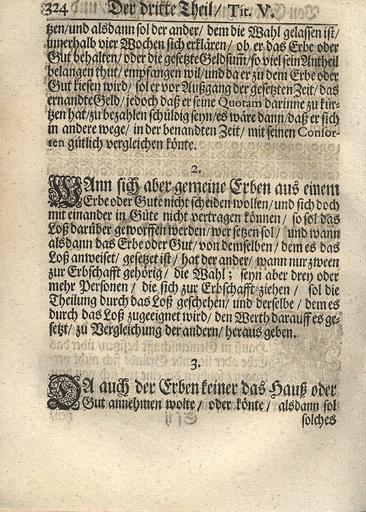 324 Der dritte Theil/ Tit. V.
tzen/ und alsdann sol der ander/ dem die Wahl gelassen ist/
innerhalb vier Wochen sich erklären/ ob er das Erbe oder
Gut behalten/ oder die gesetzte Geldsum/ so viel sein Antheil
belangen thut/ empfangen wil/ und da er zu dem Erbe oder
Gut kiesen wird/ sol er vor Außgang der gesetzten Zeit/ das
ernandte Geld/ jedoch daß er seine Quotam darinne zu kür-
tzen hat/ zu bezahlen schüldig seyn/ es wäre dann/ daß er sich
in andere wege/ in der benandten Zeit/ mit seinen Consor-
ten gütlich vergleichen könte.
2.
WAnn sich aber gemeine Erben aus einem
Erbe oder Gute nicht scheiden wollen/ und sich doch
mit einander in Güte nicht vertragen können/ so sol das
Loß darüber geworffen werden/ wer setzen sol/ und wann
alsdann das Erbe oder Gut/ von demselben/ dem es das
Loß anweiset/ gesetzet ist/ hat der ander/ wann nur zween
zur Erbschafft gehörig/ die Wahl; seyn aber drey oder
mehr Personen/ die sich zur Erbschafft ziehen/ sol die
Theilung durch das Loß geschehen/ und derselbe/ dem es
durch das Loß zugeeignet wird/ den Werth darauff es ge-
setzt/ zu Vergleichung der andern/ heraus geben.
3.
DA auch der Erben keiner das Hauß oder
Gut annehmen wolte/ oder könte/ alsdann sol
solches